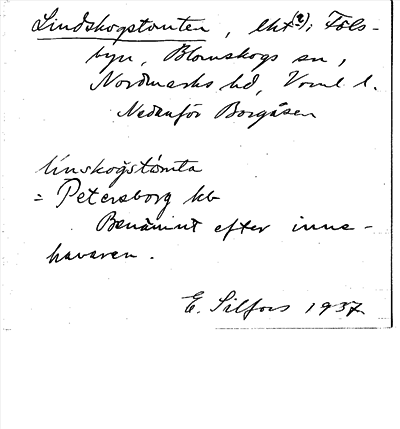 Lindskogstomten, lht(?) i Föls-
byn, Blomskogs sn,
Nordmarks hd, Vrml. l.
Nedanför Borgåsen
línskoğstòmta
= Petersborg hb
Benämnt efter inne-
havaren.
E. Silfors 1937